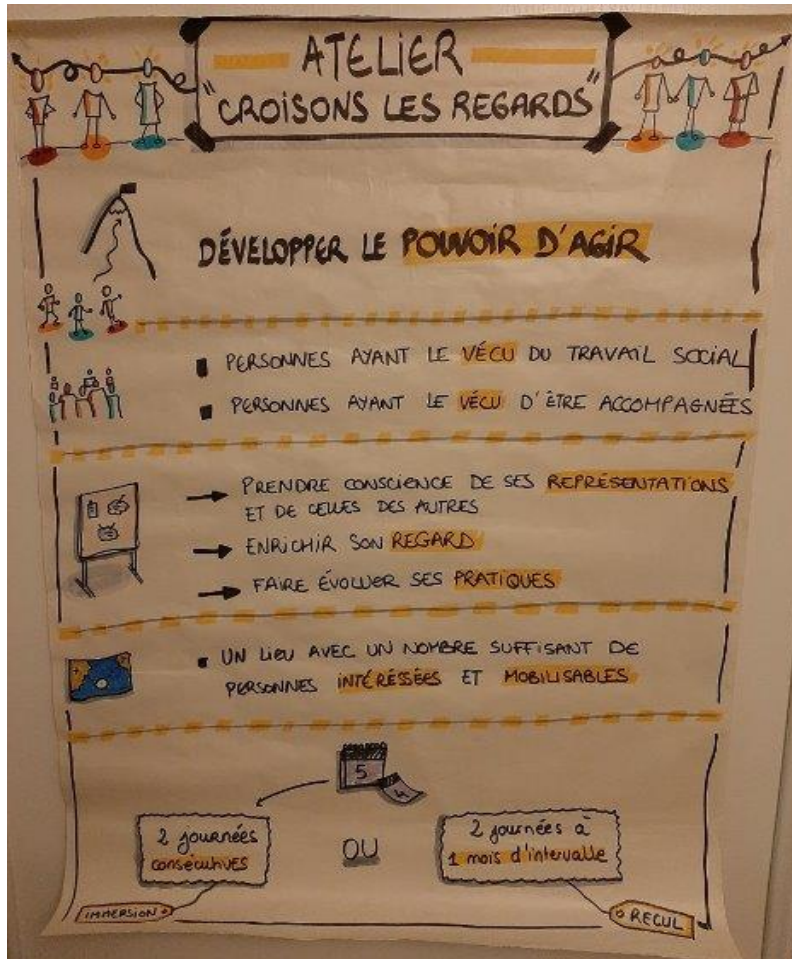 ATELIER
"CROISONS LES REGARDS"
DÉVELOPPER LE POUVOIR D'AGIR
PERSONNES AYANT LE VÉCU DU TRAVAIL SOCIAL
PERSONNES AYANT LE VÉCU D'ÊTRE ACCOMPAGNÉES
→ PRENDRE CONSCIENCE DE SES REPRÉSENTATIONS
ET DE CELLES DES AUTRES
→ ENRICHIR SON REGARD
→ FAIRE ÉVOLUER SES PRATIQUES
UN LIEU AVEC UN NOMBRE SUFFISANT DE
PERSONNES INTÉRÉSSÉES ET MOBILISABLES
5
4
2 journées
consécutives
OU
2 journées à
1 mois d'intervalle
IMMERSION
RECUL